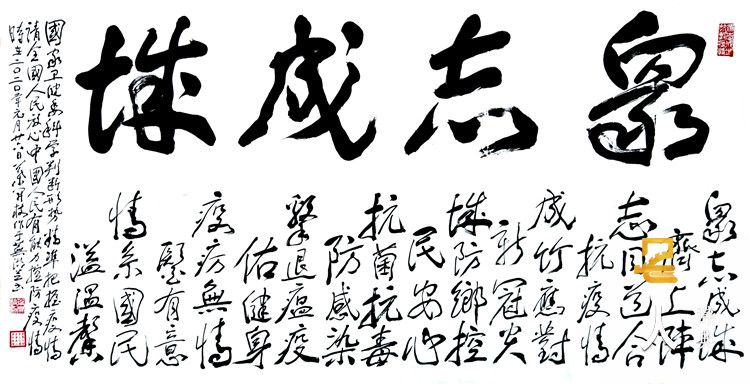 眾志成城
眾志成城
齊上陣
志同道合
抗疫情
成竹應對
新冠炎
城防鄉控
民安心
抗菌抗毒
防感染
擊退瘟疫
佑健身
疫病無情
醫有意
情系國民
溢溫馨
國家卫健委科学判断形势精準把握疫情
請全國人民放心中國人民有能力控防疫情
時在二〇二〇年元月廿六日